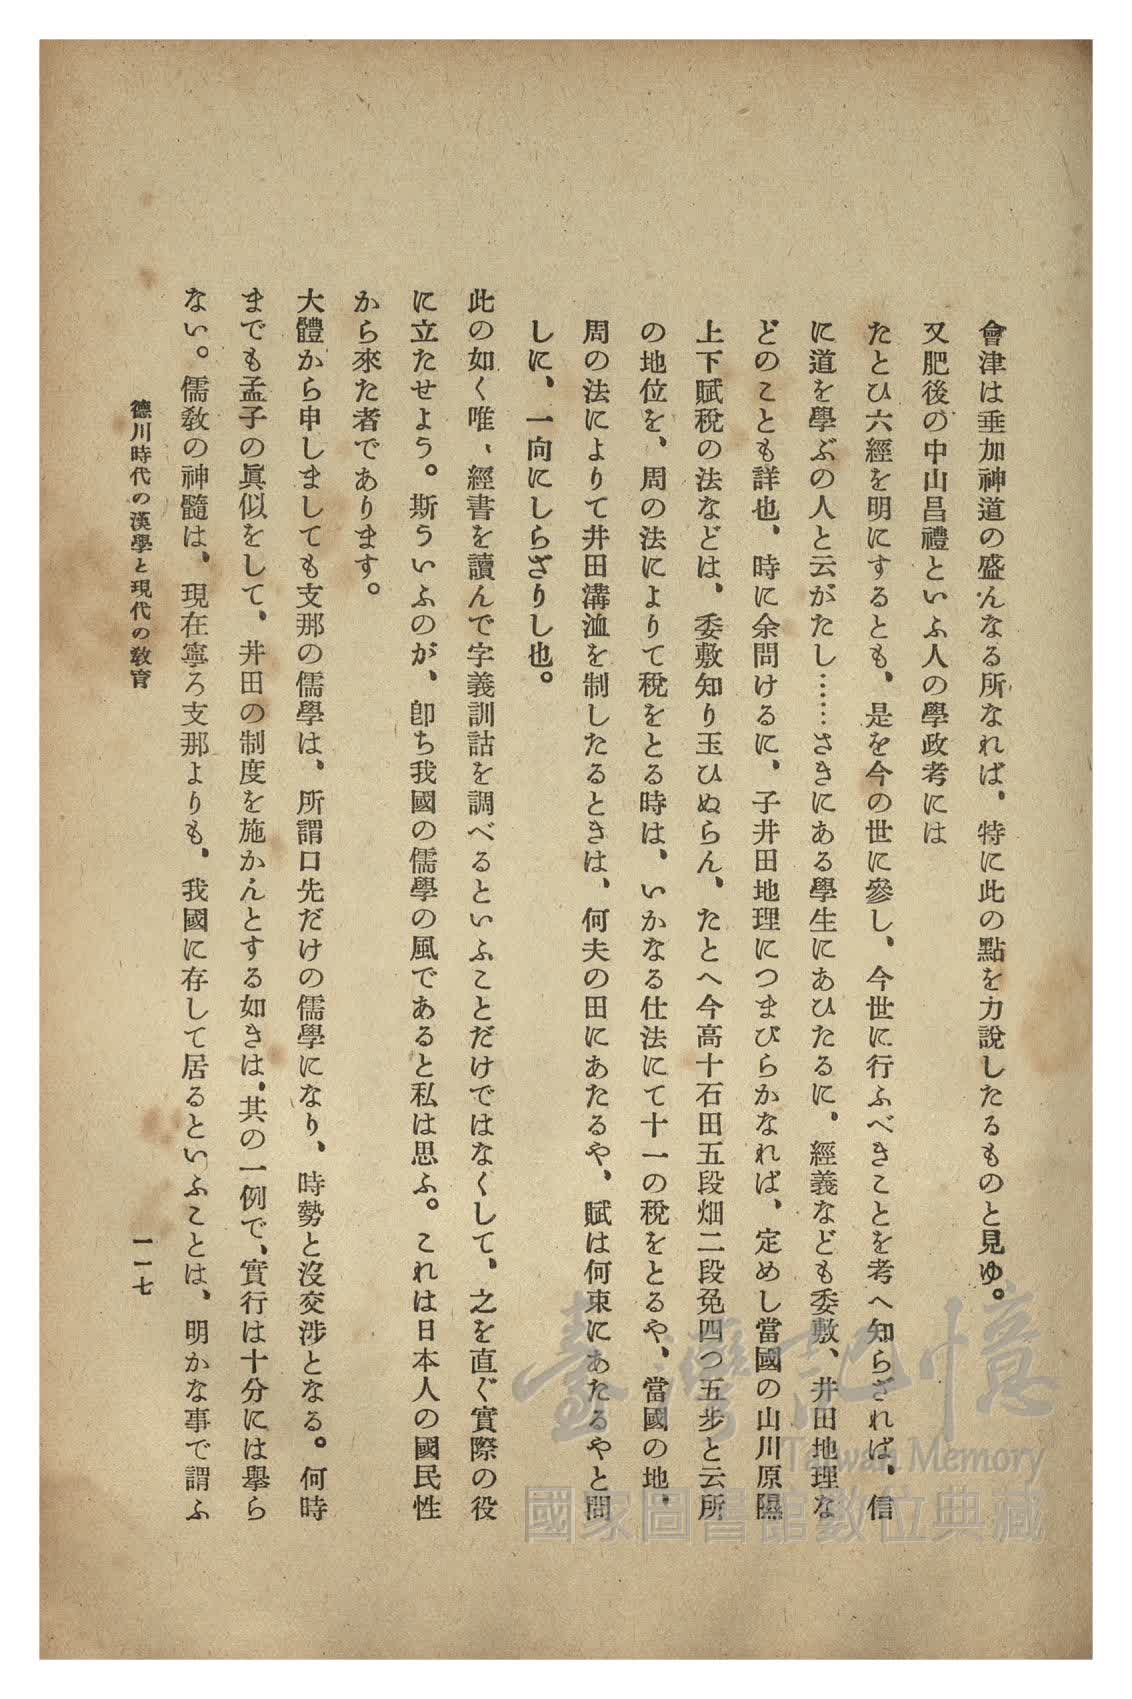 會津は垂加神道の盛んなる所なれば、特に此の點を力說したるものと見ゆ。
又肥後の中山昌禮といふ人の學政考には
たとひ六經を明にするとも、是を今の世に參し、今世に行ふべきことを考へ知らざれば、信
に道を學ぶの人と云がたし……さきにある學生にあひたるに、經義なども委敷、井田地理な
どのことも詳也、時に余問けるに、子井田地理につまびらかなれば、定めし當國の山川原隰
上下賦稅の法などは、委敷知り玉ひぬらん、たとへ今高十石田五段畑二段免四つ五步と云所
の地位を、周の法によりて稅をとる時は、いかなる仕法にて十一の稅をとるや、當國の地、
周の法によりて井田溝洫を制したるときは、何夫の田にあたるや、賦は何束にあたるやと問
しに、一向にしらざりし也。
此の如く唯、經書を讀んで字義訓詁を調べるといふことだけではなくして、之を直ぐ實際の役
に立たせよう。斯ういふのが、卽ち我國の儒學の風であると私は思ふ。これは日本人の國民性
から來た者であります。
大體から申しましても支那の儒學は、所謂口先だけの儒學になり、時勢と沒交涉となる。何時
までも孟子の眞似をして、井田の制度を施かんとする如きは、其の一例で、實行は十分には擧ら
ない。儒敎の神髓は、現在寧ろ支那よりも、我國に存して居るといふことは、明かな事で謂ふ
德川時代の漢學と現代の敎育
一一七
臺灣記憶
Taiwan Memory
國家圖書館數位典藏